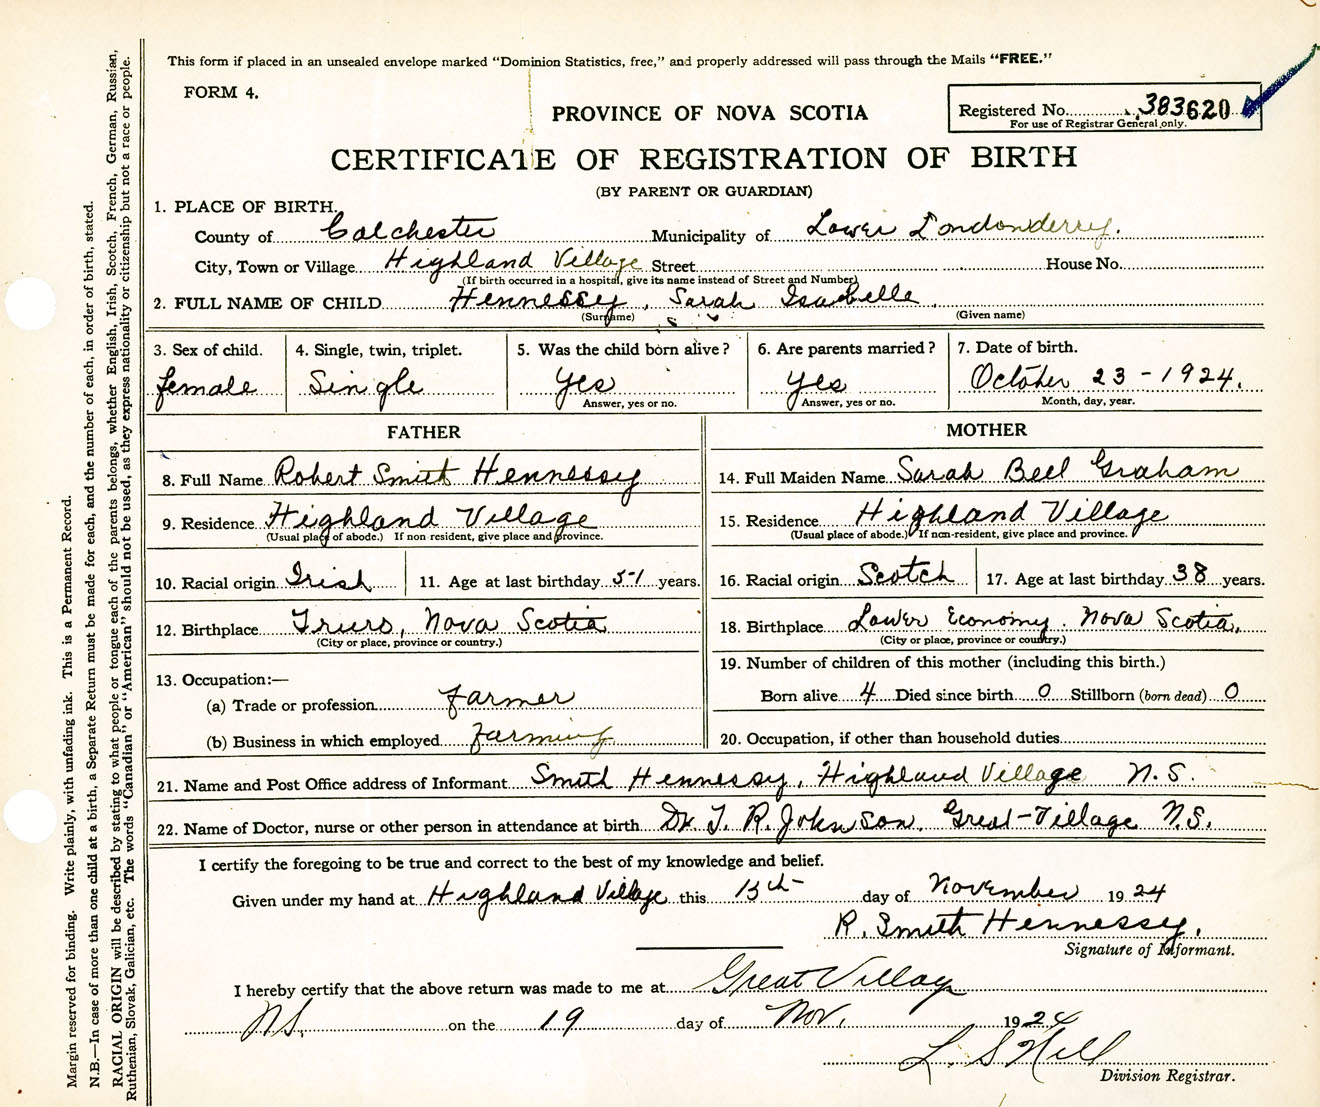 This form if placed in an unsealed envelope marked “Dominion Statistics, free,” and properly addressed will pass through the Mails “FREE.”
FORM 4.
PROVINCE OF NOVA SCOTIA
Registered No. 383620
For use of Registrar General only.
CERTIFICATE OF REGISTRATION OF BIRTH
(BY PARENT OR GUARDIAN)
1. PLACE OF BIRTH.
County of Colchester Municipality of Lower Londonderry.
City, Town or Village Highland Village Street House No.
(If birth occurred in a hospital, give its name instead of Street and Number)
2. FULL NAME OF CHILD Hennessy, Sarah Isabelle
(Surname) (Given name)
3. Sex of child. 4. Single, twin, triplet. 5. Was the child born alive? 6. Are parents married? 7. Date of birth.
female Single Yes Yes October 23-1924.
Answer, yes or no. Answer, yes or no. Month, day, year.
FATHER MOTHER
8. Full Name Robert Smith Hennessy 14. Full Maiden Name Sarah Bell Graham
9. Residence Highland Village 15. Residence Highland Village
(Usual place of abode.) If non resident, give place and province. (Usual place of abode.) If non-resident, give place and province.
10. Racial origin Irish 11. Age at last birthday 51 years. 16. Racial origin Scotch 17. Age at last birthday 38 years.
12. Birthplace Truro, Nova Scotia 18. Birthplace Lower Economy. Nova Scotia.
(City or place, province or country.) (City or place, province or country.)
13. Occupation:— 19. Number of children of this mother (including this birth.)
(a) Trade or profession Farmer Born alive 4 Died since birth 0 Stillborn (born dead) 0
(b) Business in which employed Farming 20. Occupation, if other than household duties
21. Name and Post Office address of Informant Smith Hennessy, Highland Village N.S.
22. Name of Doctor, nurse or other person in attendance at birth Dr. T. R. Johnson. Great-Village N.S.
I certify the foregoing to be true and correct to the best of my knowledge and belief.
Given under my hand at Highland Village this 13th day of November 1924
R. Smith Hennessy.
Signature of Informant.
I hereby certify that the above return was made to me at Great Village
N.S. on the 19 day of Nov. 1924
L S Hill
Division Registrar.
Margin reserved for binding. Write plainly, with unfading ink. This is a Permanent Record.
N.B.—In case of more than one child at a birth, a Separate Return must be made for each, and the number of each, in order of birth, stated.
RACIAL ORIGIN will be described by stating to what people or tongue each of the parents belongs, whether English, Irish, Scotch, French, German, Russian,
Ruthenian, Slovak, Galician, etc. The words “Canadian” or “American” should not be used, as they express nationality or citizenship but not a race or people.